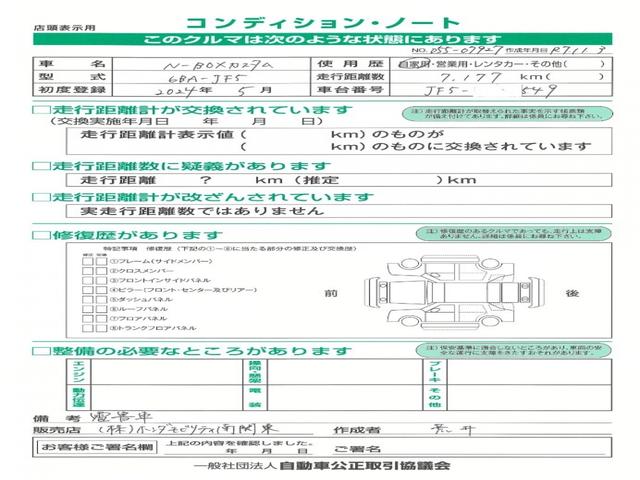 店頭表示用 コンディション・ノート
このクルマは次のような状態にあります
NO. 055-07927 作成年月日 R7.11.3
車名 N-BOXカスタム 使用歴 自家用・営業用・レンタカー・その他( )
型式 6BA-JF5 走行距離数 7,177 km( )
初度登録 2024年 5月 車台番号 JF5- 649
□走行距離計が交換されています
(交換実施年月日 年 月 日)
注)走行距離計が取替えられた事実を示す帳票類が備え付けてあります。詳細は係員にお尋ね下さい。
走行距離計表示値( km)のものが
( km)のものに交換されています
□走行距離数に疑義があります
走行距離 ? km(推定 )km
□走行距離計が改ざんされています
実走行距離数ではありません
□修復歴があります
注)修復歴のあるクルマであっても、走行上は支障ありません。詳細は係員にお尋ね下さい。
特記事項 修復歴(下記の①~⑧に当たる部分の修正及び交換歴)
修正 交換
①フレーム(サイドメンバー)
②クロスメンバー
③フロントインサイドパネル
④ピラー(フロント・センター及びリアー)
⑤ダッシュパネル
⑥ルーフパネル
⑦フロアパネル
⑧トランクフロアパネル
前 後
□整備の必要なところがあります
注)保安基準に適合しないところがあり、車両の安全な運行に支障をきたすおそれがあります。
エンジン 操向・懸架 ブレーキ
動力伝達 電装 その他
備考 展示車
販売店 (株)ホンダモビリティ南関東 作成者 荒井
お客様ご署名欄 上記の内容を確認しました。
年 月 日 ご署名
一般社団法人 自動車公正取引協議会